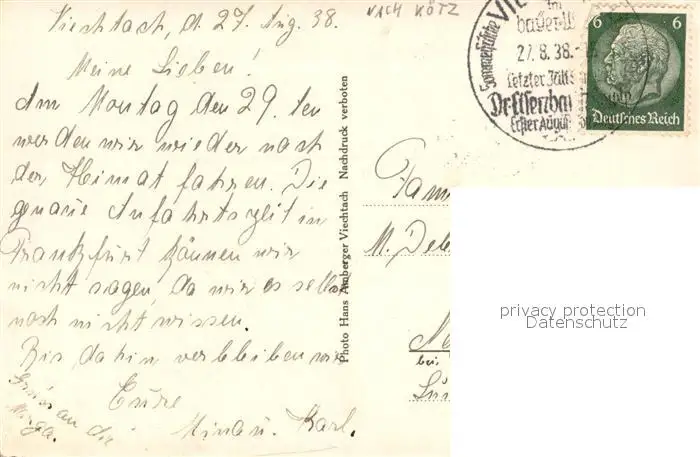 Viechtach, d. 27. Aug. 38.
NACH KÖTZ
Meine Lieben!
Am Montag den 29. ten
werden wir wieder nach
der Heimat fahren. Die
genaue Anfahrtszeit in
Frankfurt können wir
nicht sagen, da wir es selbst
noch nicht wissen.
Bis dahin verbleiben wir
Eure
Gruss an die
Minga.
Mina u. Karl.
Photo Hans Amberger Viechtach Nachdruck verboten
Sommerfrische VIE
im
bayer. W
27.8.38.
Letzter Juli
Dr Eisenba
Erster Augu
6 6
Deutsches Reich
Fam
M.
bei
privacy protection
Datenschutz